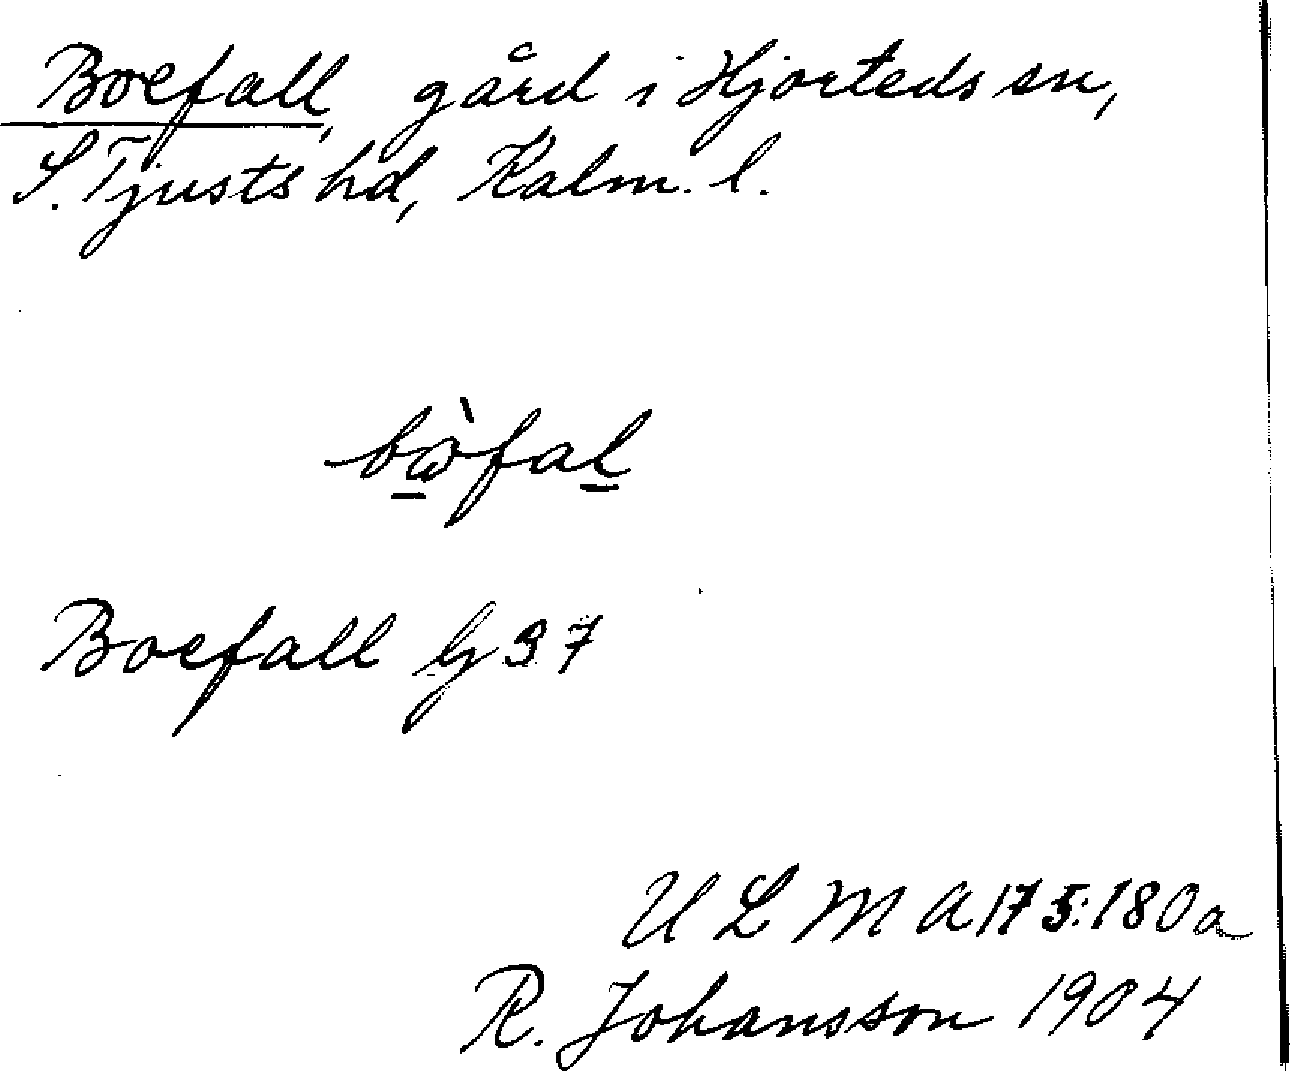 Boefall, gård i Hjorteds sn,
S. Tjusts hd, Kalm. l.
Boefall G 37
U L M A 175:180a
R. Johansson 1904